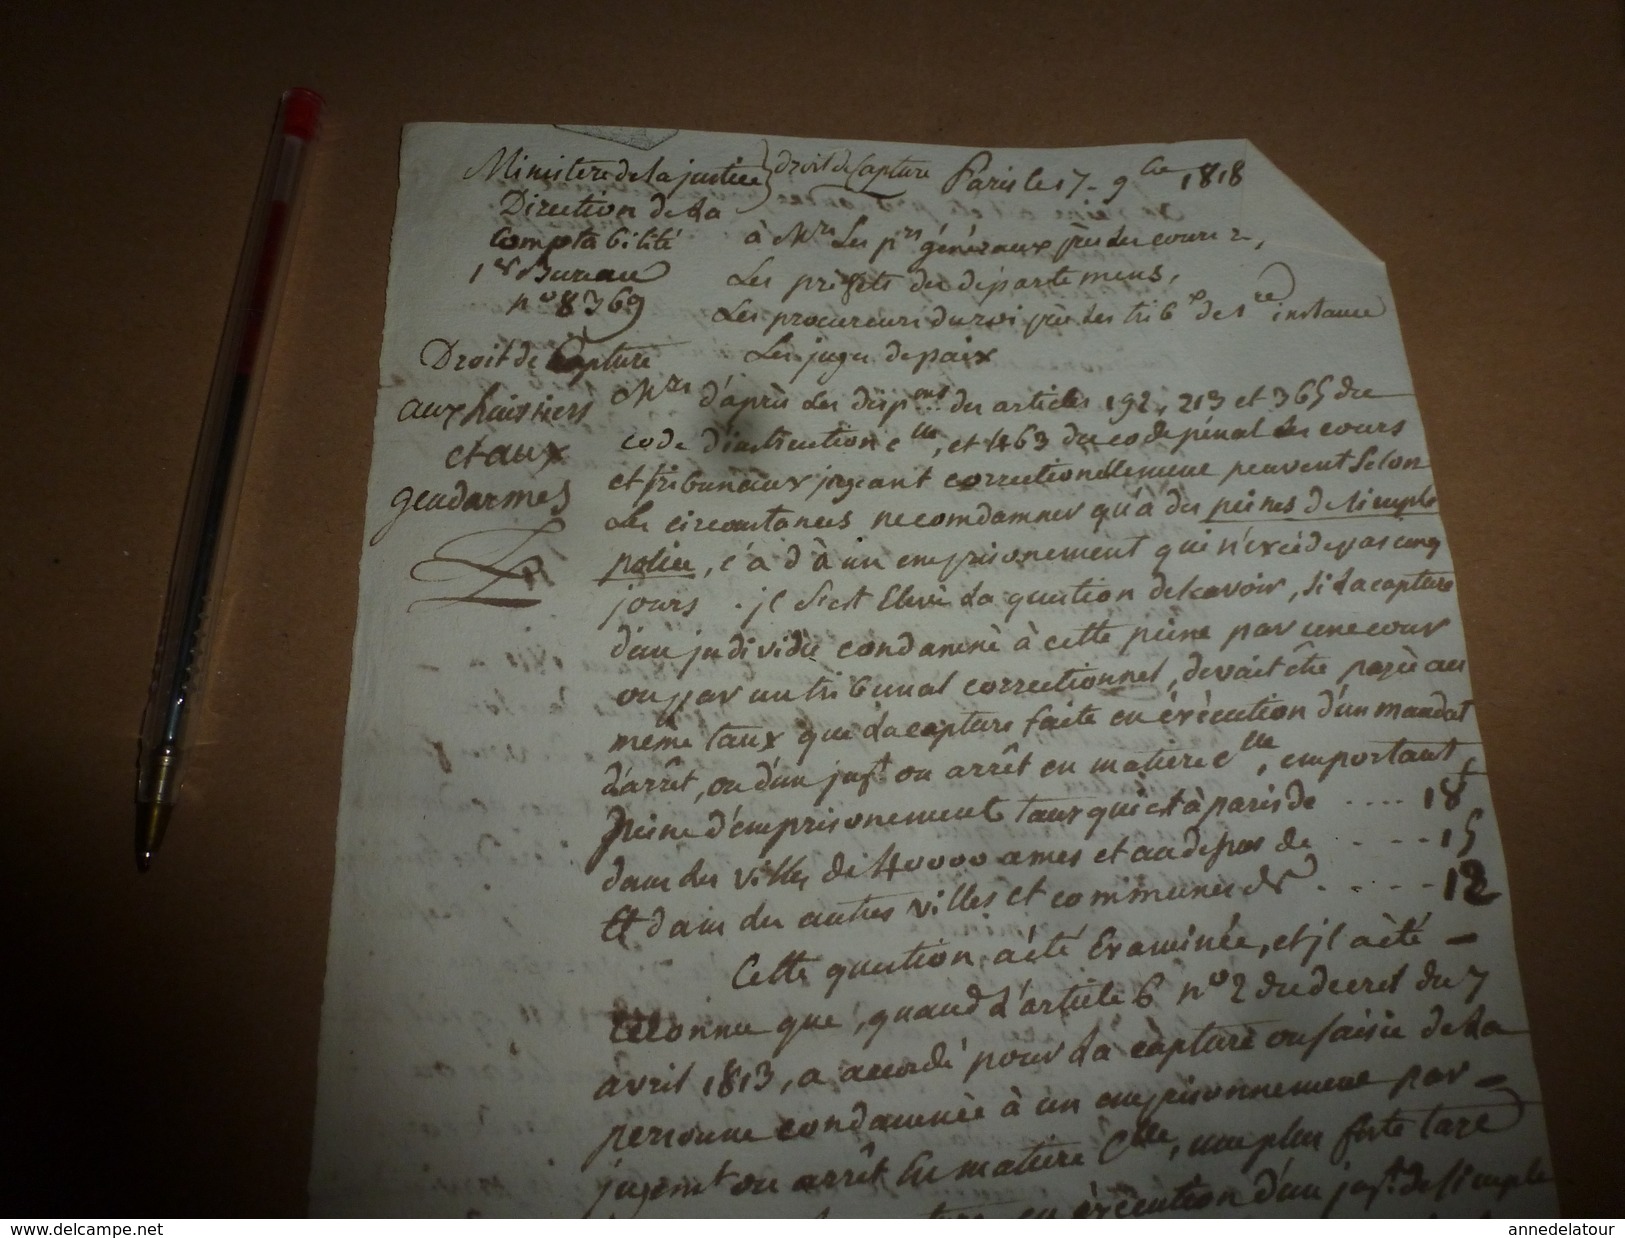 Ministère de la justice } droit de Capture Paris le 17. 9bre 1818
Direction de la
Comptabilité
1er Bureau
n° 8369
Droit de Capture
aux huissiers
et aux
gendarmes
à Mrs Les prs généraux près des cours
Les préfets des départemens,
Les procureurs du roi près des trib. de 1re instance
Les juges de paix
Mrs d'après Les dispons des articles 192, 213 et 365 du
code d'instruction clle, et 463 du code pénal Les cours
et tribunaux jugeant correctionellement peuvent Selon
Les circonstances ne comdamner qu'à des peines de Simple
police, c'à d à un emprisonement qui n'excède pas cinq
jours. jl S'est Elevé La question de Scavoir, Si La capture
d'un jndividû condamné à cette peine par une cour
ou par un tribunal correctionnel, devait être payée au
même taux que La capture faite en éxécution d'un mandat
d'arrêt, ou d'un jugt ou arrêt en matière clle, emportant
peine d'emprisonement taux qui est à paris de .... 18
dans des villes de 40000 ames et au dessus de .... 15
Et dans des autres villes et communes de .... 12
Cette question a été Examinée, et jl a été
reconnu que, quand L'article 6 n° 2 du decret du 7
avril 1813, a accordé pour La capture ou saisie de La
personne condamnée à un emprisonnement par
jugemt ou arrêt En matière Clle, une plus forte taxe
en éxécution d'un jugt. de simple
www.delcampe.net
annedelatour